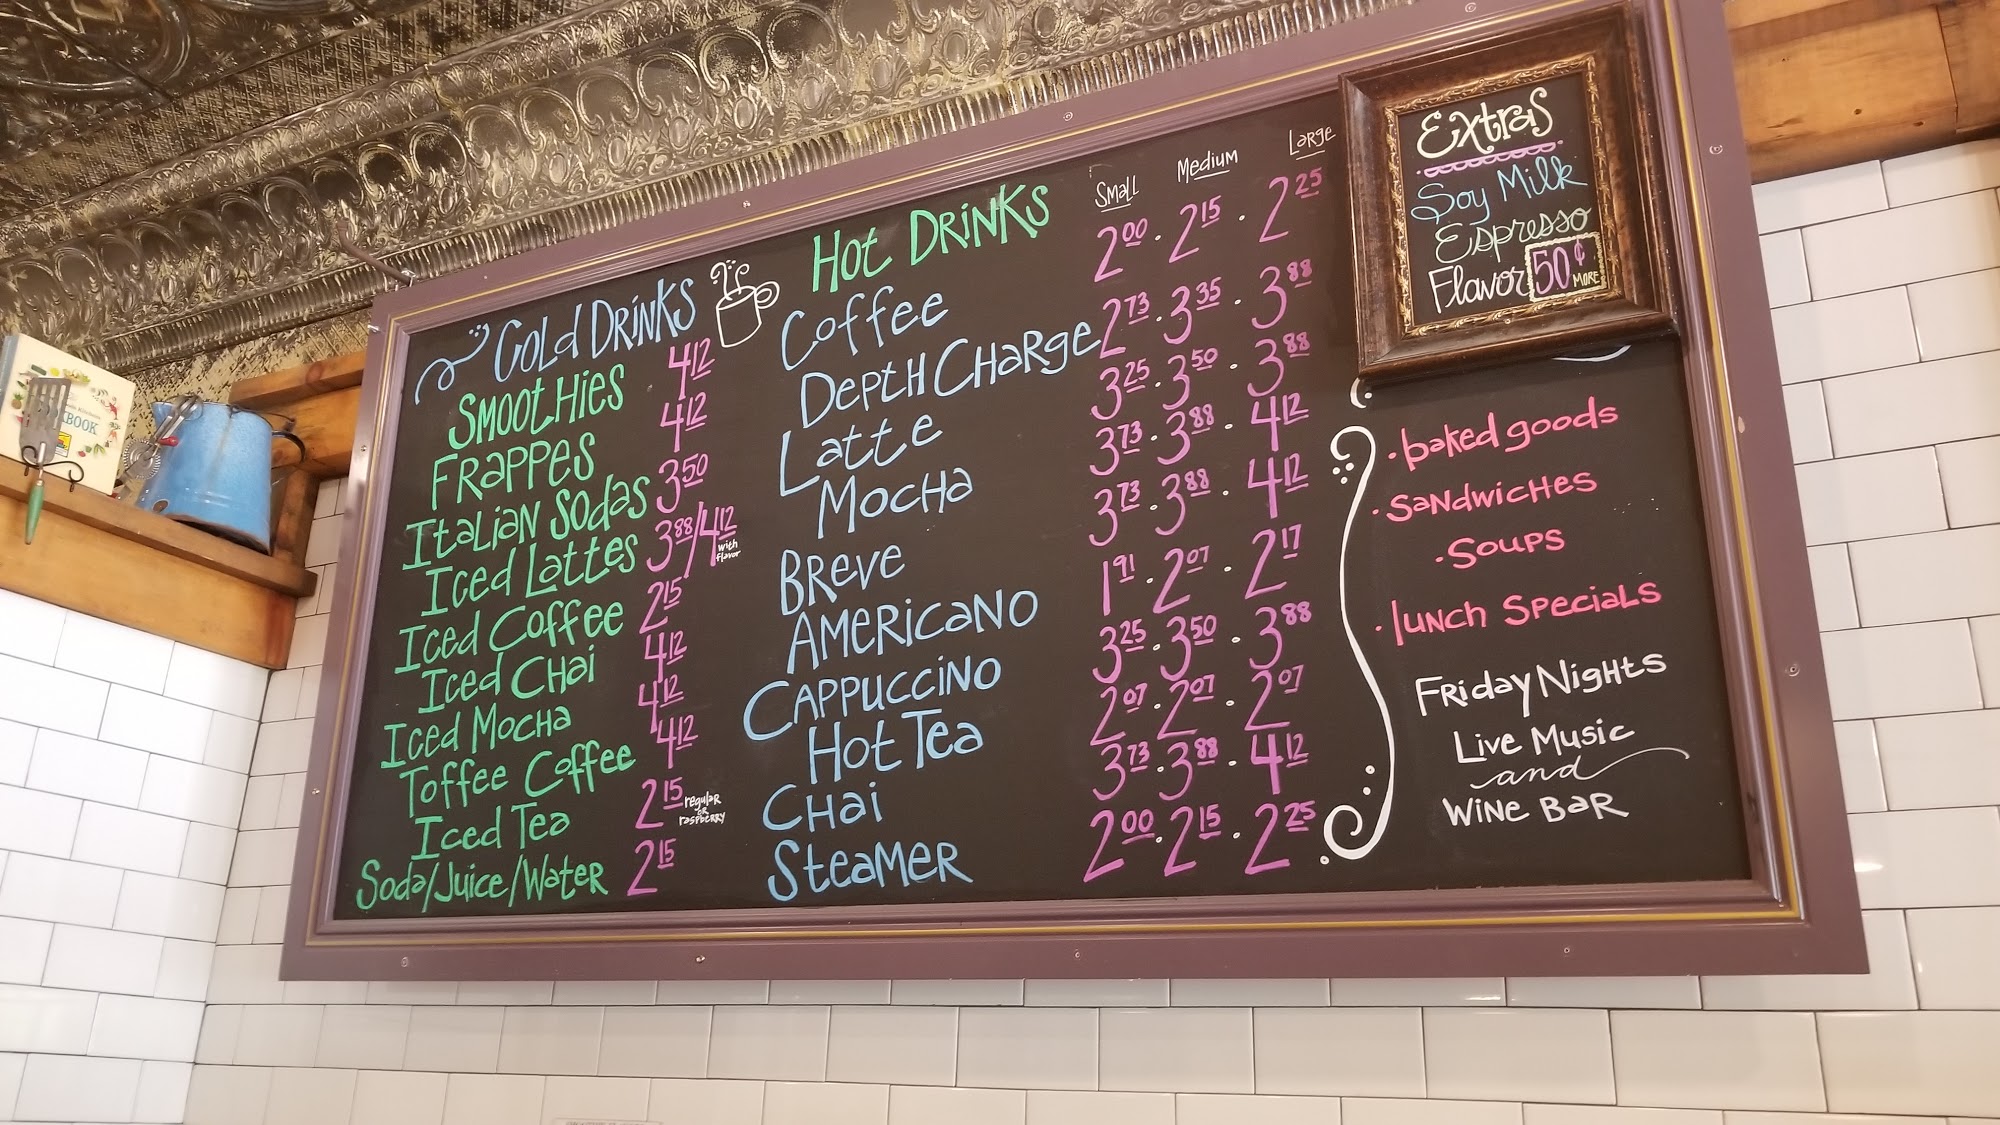 Cold Drinks
Smoothies 4.12
Frappes 4.12
Italian Sodas 3.50
Iced Lattes 3.88/4.12 with flavor
Iced Coffee 2.15
Iced Chai 4.12
Iced Mocha 4.12
Toffee Coffee 4.12
Iced Tea 2.15 regular or raspberry
Soda/Juice/Water 2.15
Hot Drinks Small Medium Large
Coffee 2.00 · 2.15 · 2.25
Depth Charge 2.73 · 3.35 · 3.88
Latte 3.25 · 3.50 · 3.88
Mocha 3.73 · 3.88 · 4.12
Breve 3.73 · 3.88 · 4.12
Americano 1.91 · 2.07 · 2.17
Cappuccino 3.25 · 3.50 · 3.88
Hot Tea 2.07 · 2.07 · 2.07
Chai 3.73 · 3.88 · 4.12
Steamer 2.00 · 2.15 · 2.25
Extras
Soy Milk
Espresso
Flavor 50¢ more
· baked goods
· Sandwiches
· Soups
· lunch Specials
Friday Nights
Live Music
and
Wine Bar